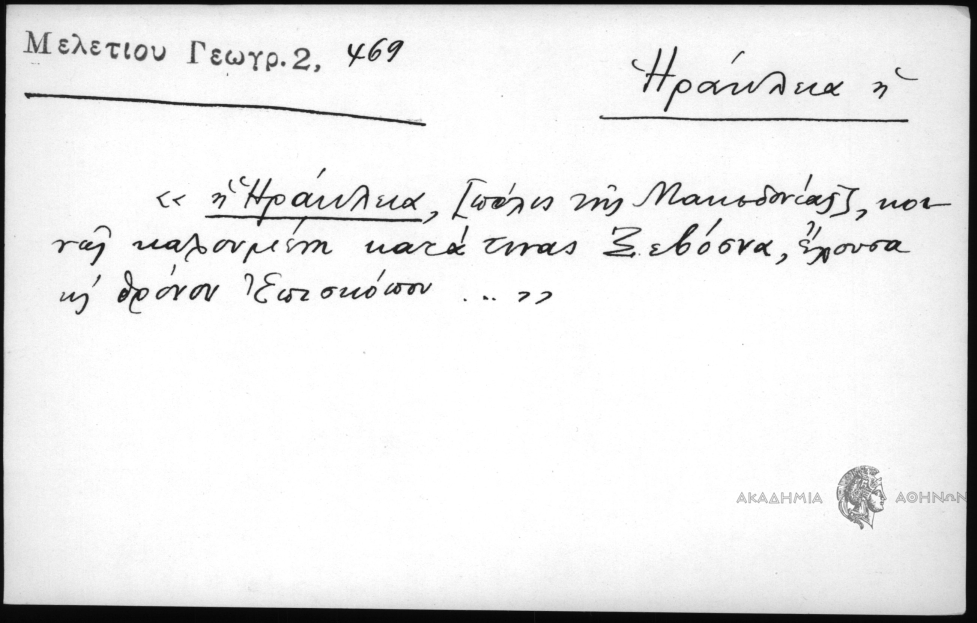 Μελετίου Γεωγρ. 2, 469
Ἡράκλεια ἡ
« ἡ Ἡράκλεια, [πόλις τῆς Μακεδονίας], κοι-
νῶς καλουμένη κατά τινας Ξεβόσνα, ἔχουσα
κ᾽ θρόνον Ἐπισκόπου ... »
ΑΚΑΔΗΜΙΑ ΑΘΗΝΩΝ